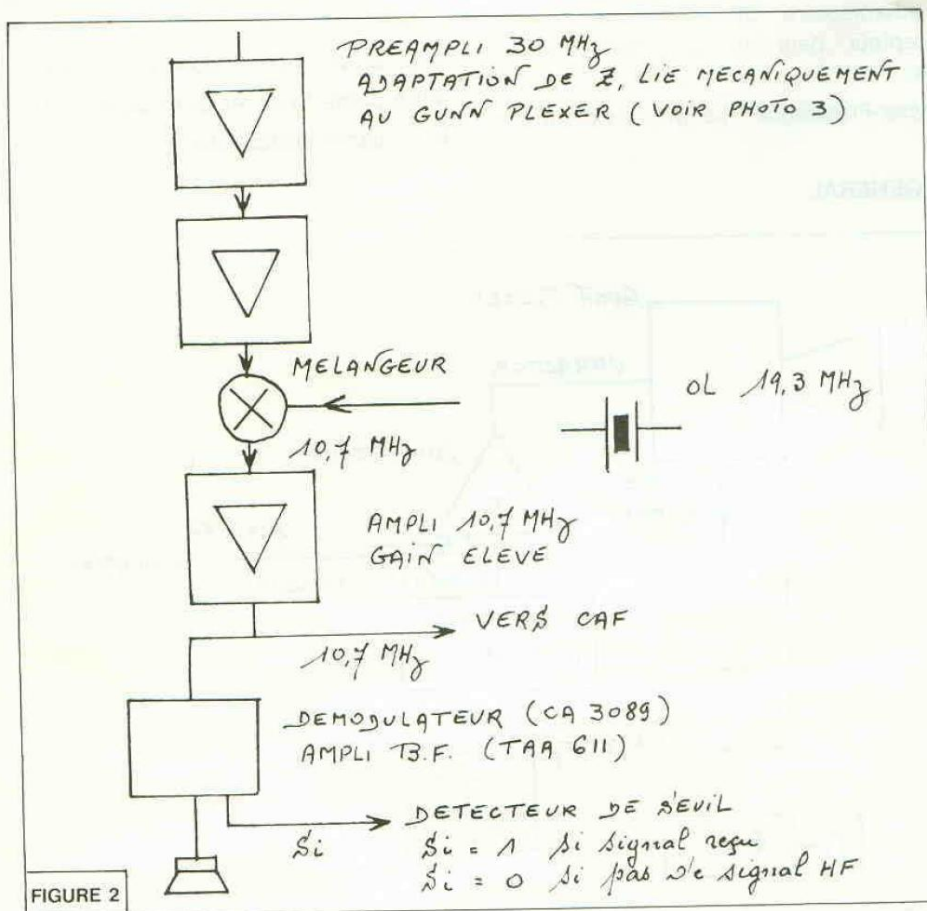 PREAMPLI 30 MHz
ADAPTATION DE Z, LIE MECANIQUEMENT
AU GUNN PLEXER (VOIR PHOTO 3)
MELANGEUR
OL 19,3 MHz
10,7 MHz
AMPLI 10,7 MHz
GAIN ELEVE
VERS CAF
10,7 MHz
DEMODULATEUR (CA 3089)
AMPLI B.F. (TAA 611)
DETECTEUR DE SEUIL
Si
Si = 1 si signal reçu
Si = 0 si pas de signal HF
FIGURE 2